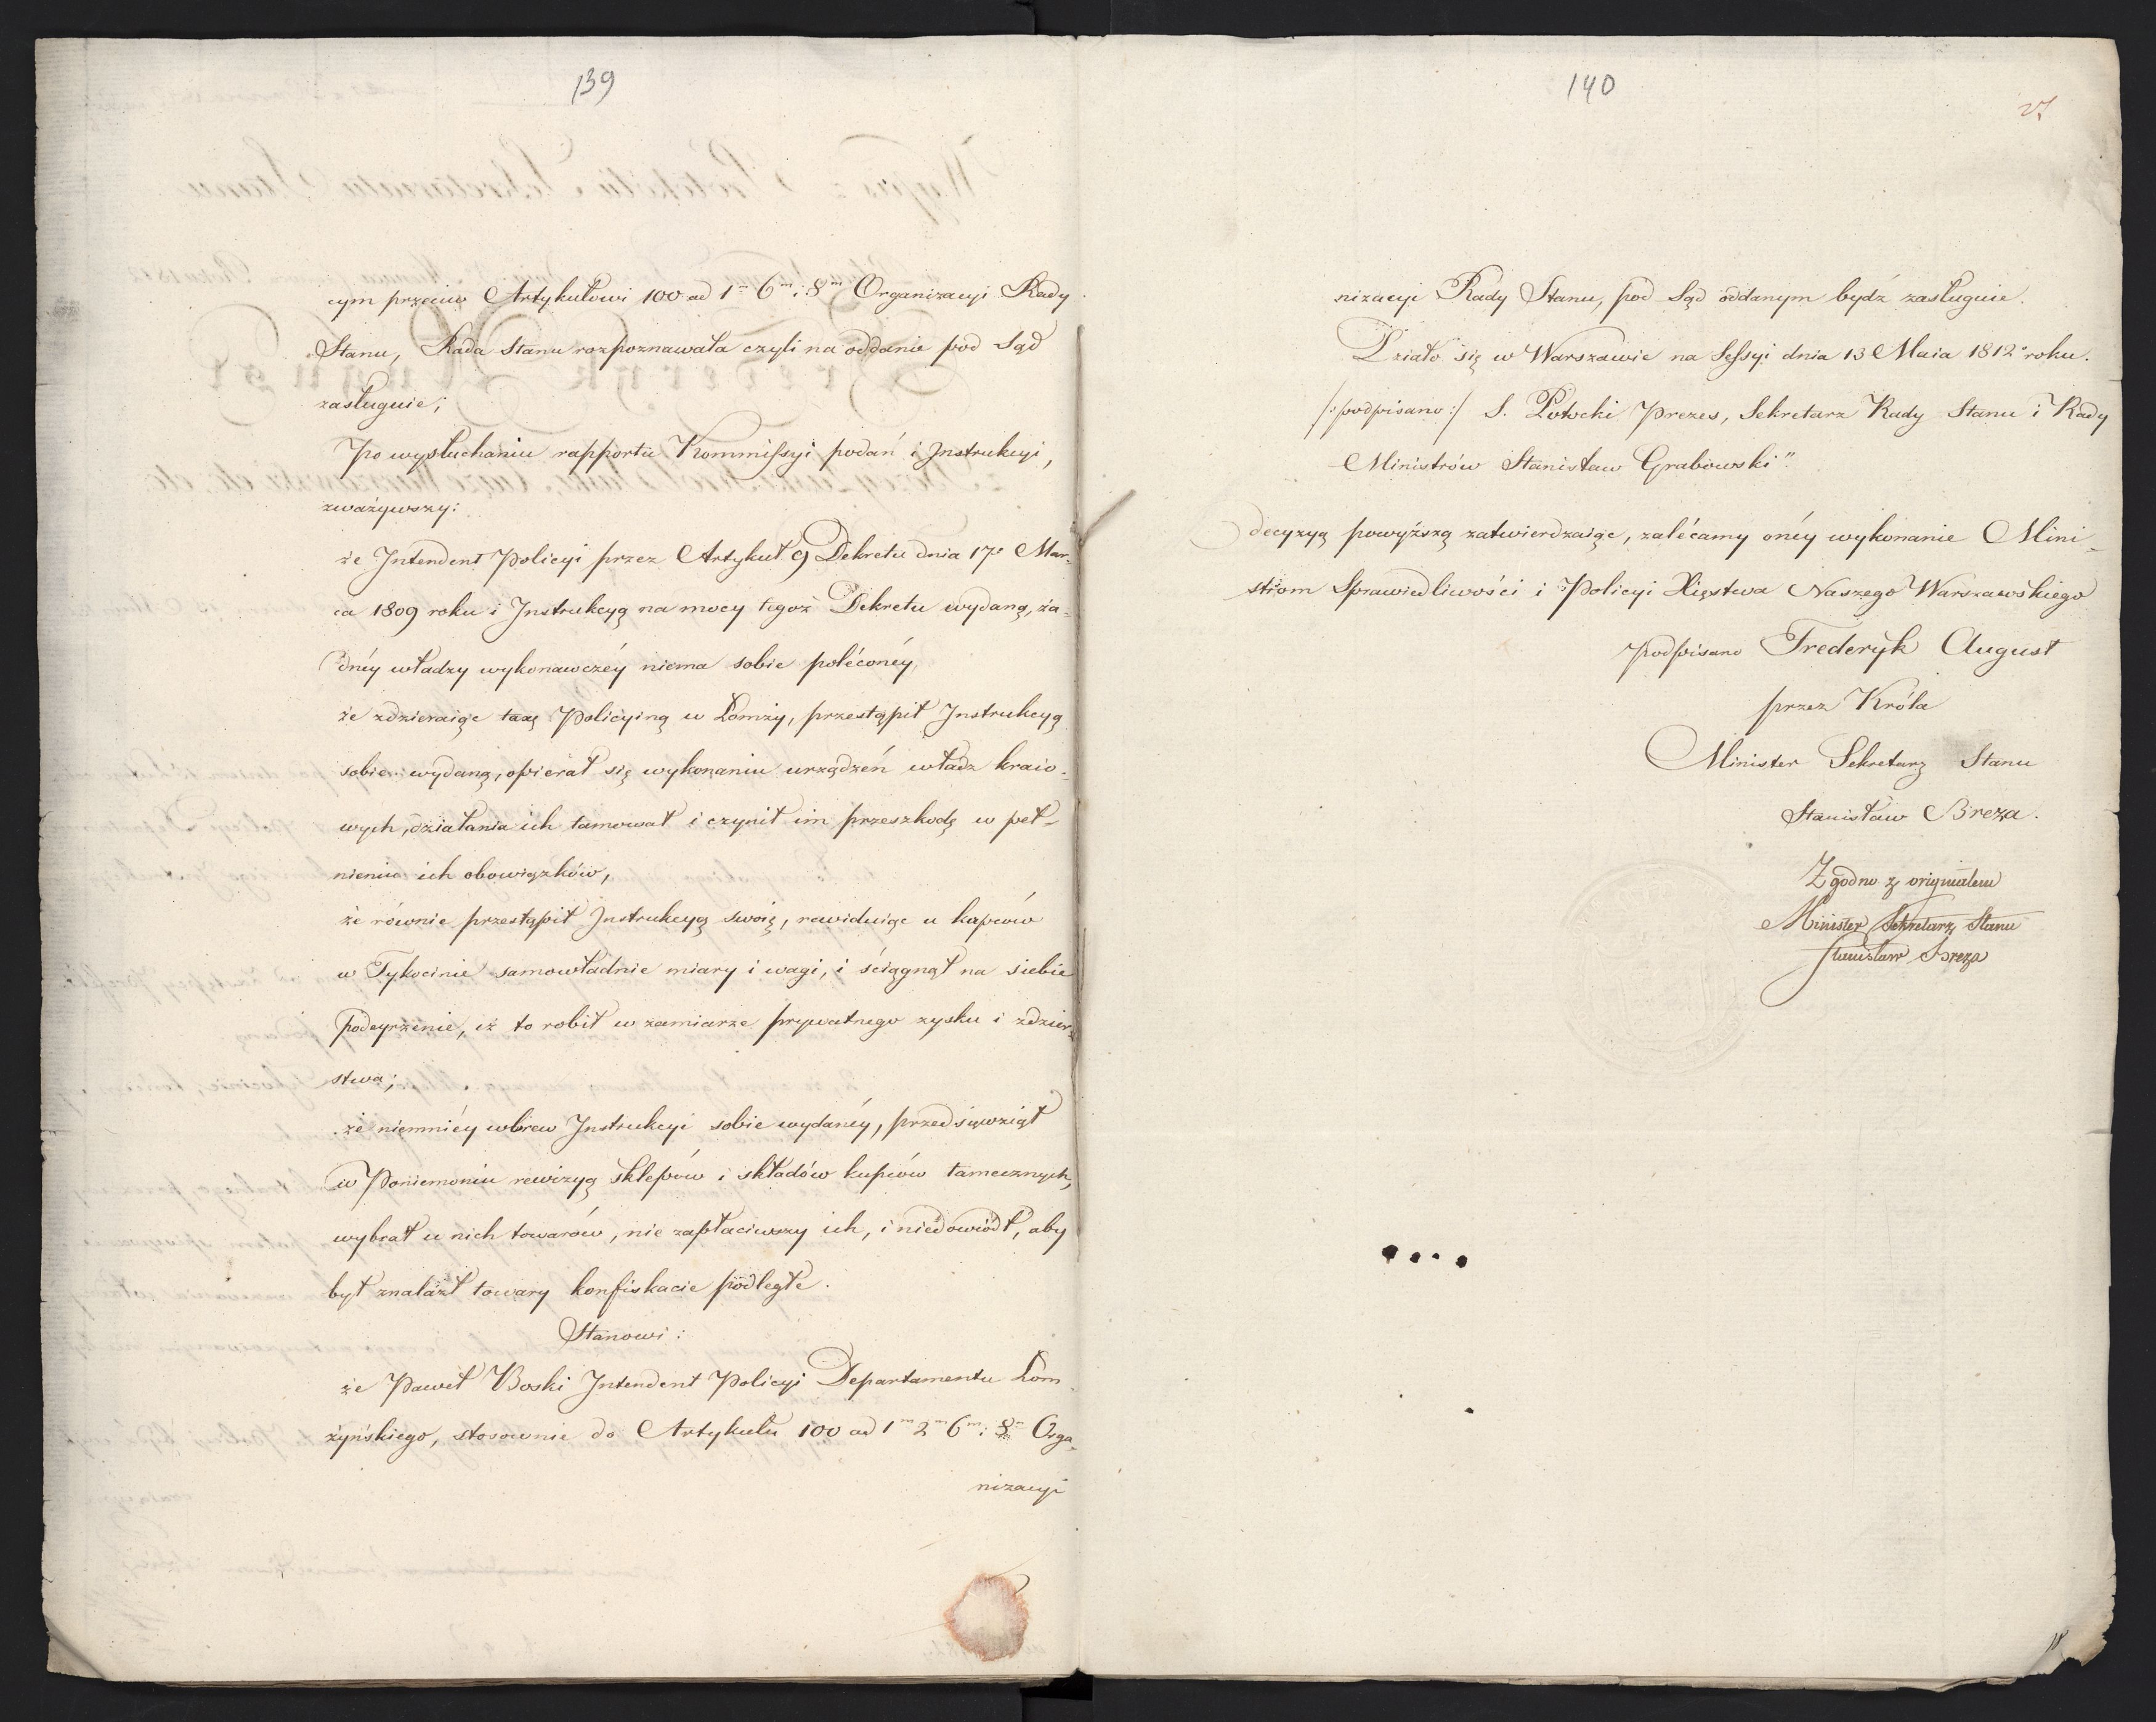 139
cym przeciw Artykułowi 100 ad 1m 6m i 8m Organizacyi Rady
Stanu, Rada Stanu rozpoznawała czyli na oddanie pod Sąd
zasługuie;
Po wysłuchaniu rapportu Kommissyi podań i Instrukcyi,
zważywszy:
że Intendent Policyi przez Artykuł 9 Dekretu dnia 17o Mar-
ca 1809 roku i Instrukcyą na mocy tegoż Dekretu wydaną, ża-
dnéy władzy wykonawczéy niema sobie poléconéy,
że zdzieraiąc taxę Policyiną w Łomży, przestąpił Instrukcyą
sobie wydaną, opierał się wykonaniu urządzeń władz kraio-
wych, działania ich tamował i czynił im przeszkodę w peł-
nieniu ich obowiązków,
że równie przestąpił Instrukcyą swoię, rewiduiąc u kupców
w Tykocinie samowładnie miary i wagi, i ściągnął na siebie
podeyrzenie, iż to robił w zamiarze prywatnego zysku i zdzier-
stwa;
że niemniéy wbrew Instrukcyi sobie wydanéy, przedsięwziął
w Poniemoniu rewizyą sklepów i składów kupców tamecznych,
wybrał u nich towarów, nie zapłaciwszy ich, i niedowiódł, aby
był znalazł towary konfiskacie podległe.
Stanowi:
że Paweł Boski Intendent Policyi Departamentu Łom-
żyńskiego, stosownie do Artykułu 100 ad 1m 2m 6m i 8m Orga-
nizacyi
140
27
nizacyi Rady Stanu, pod Sąd oddanym bydź zasługuie.
Działo się w Warszawie na Sessyi dnia 13 Maia 1812o roku.
/:podpisano:/ S. Potocki Prezes, Sekretarz Rady Stanu i Rady
Ministrów Stanisław Grabowski".
decyzyą powyższą zatwierdzaiąc, zalécamy onéy wykonanie Mini-
strom Sprawiedliwości i Policyi Xięstwa Naszego Warszawskiego
podpisano Frederyk August
przez Króla
Minister Sekretarz Stanu
Stanisław Breza.
Zgodno z oryginałem
Minister Sekretarz Stanu
Stanisław Breza